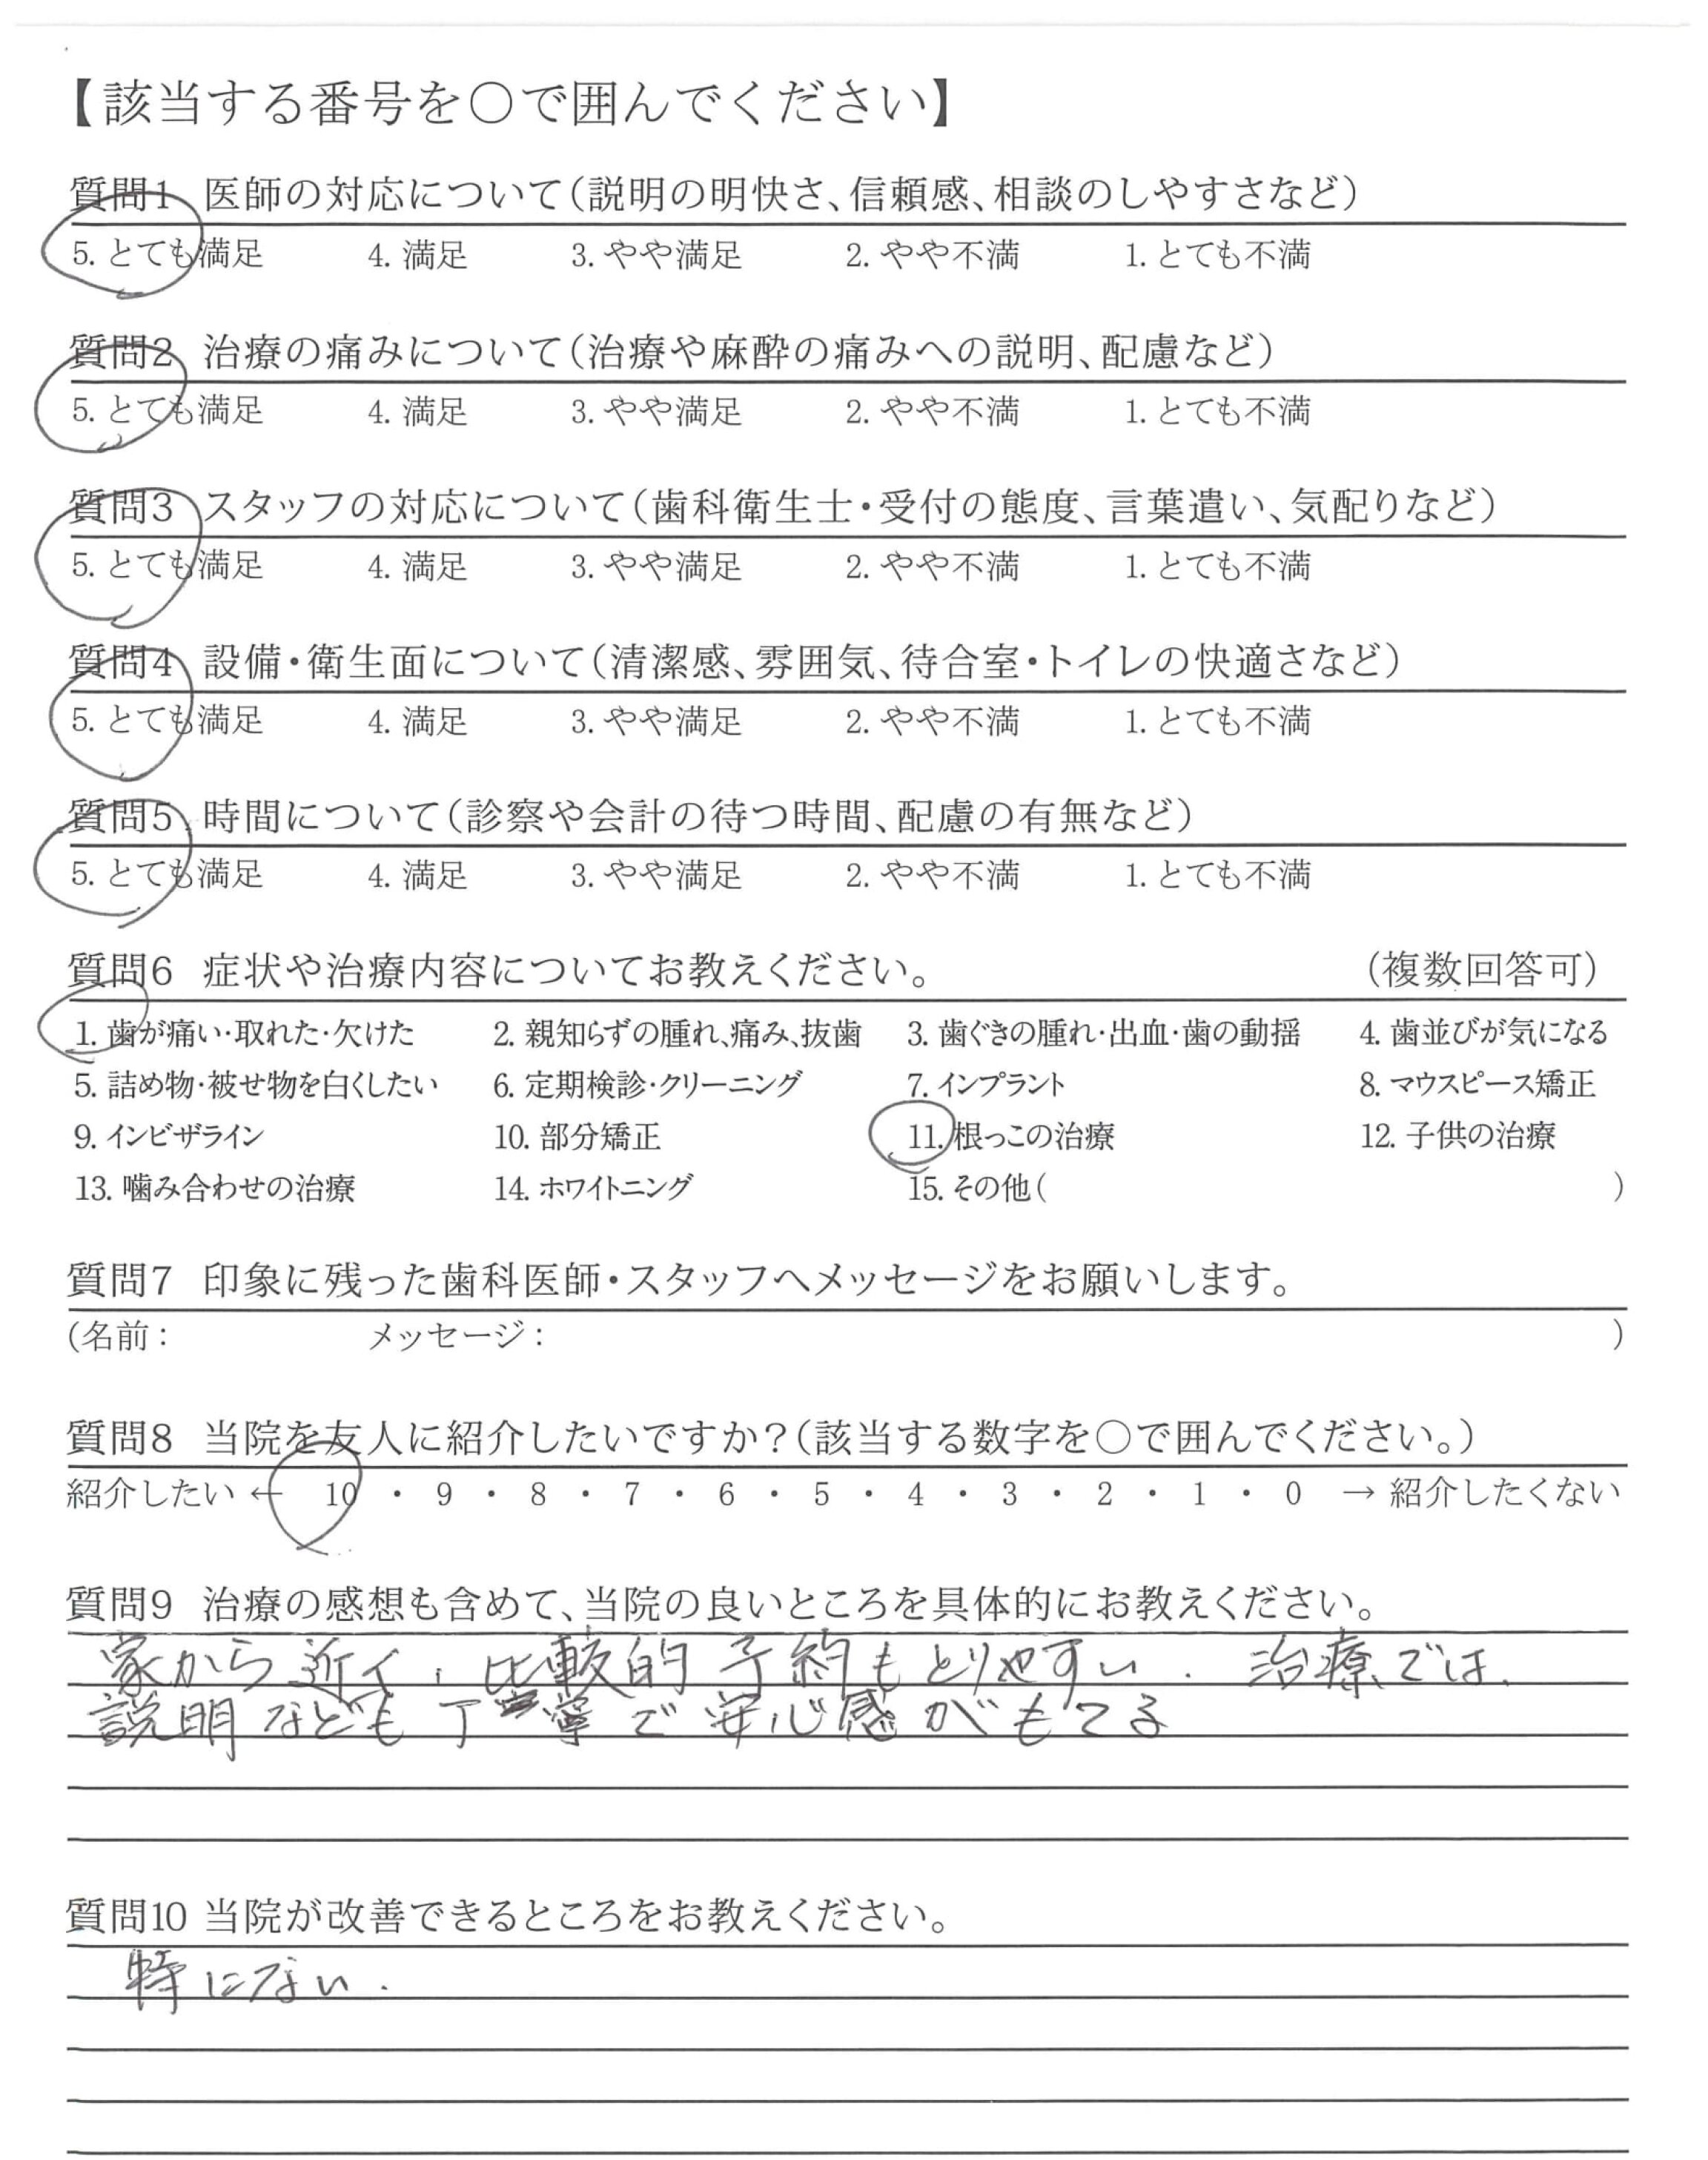 【該当する番号を〇で囲んでください】
質問1 医師の対応について(説明の明快さ、信頼感、相談のしやすさなど)
5. とても満足 4. 満足 3. やや満足 2. やや不満 1. とても不満
質問2 治療の痛みについて(治療や麻酔の痛みへの説明、配慮など)
5. とても満足 4. 満足 3. やや満足 2. やや不満 1. とても不満
質問3 スタッフの対応について(歯科衛生士・受付の態度、言葉遣い、気配りなど)
5. とても満足 4. 満足 3. やや満足 2. やや不満 1. とても不満
質問4 設備・衛生面について(清潔感、雰囲気、待合室・トイレの快適さなど)
5. とても満足 4. 満足 3. やや満足 2. やや不満 1. とても不満
質問5 時間について(診察や会計の待つ時間、配慮の有無など)
5. とても満足 4. 満足 3. やや満足 2. やや不満 1. とても不満
質問6 症状や治療内容についてお教えください。 (複数回答可)
1. 歯が痛い・取れた・欠けた 2. 親知らずの腫れ、痛み、抜歯 3. 歯ぐきの腫れ・出血・歯の動揺 4. 歯並びが気になる
5. 詰め物・被せ物を白くしたい 6. 定期検診・クリーニング 7. インプラント 8. マウスピース矯正
9. インビザライン 10. 部分矯正 11. 根っこの治療 12. 子供の治療
13. 噛み合わせの治療 14. ホワイトニング 15. その他( )
質問7 印象に残った歯科医師・スタッフへメッセージをお願いします。
(名前: メッセージ: )
質問8 当院を友人に紹介したいですか?(該当する数字を〇で囲んでください。)
紹介したい ← 10 ・ 9 ・ 8 ・ 7 ・ 6 ・ 5 ・ 4 ・ 3 ・ 2 ・ 1 ・ 0 → 紹介したくない
質問9 治療の感想も含めて、当院の良いところを具体的にお教えください。
家から近く、比較的予約もとりやすい. 治療では、
説明なども丁寧で安心感がもてる
質問10 当院が改善できるところをお教えください。
特にない.